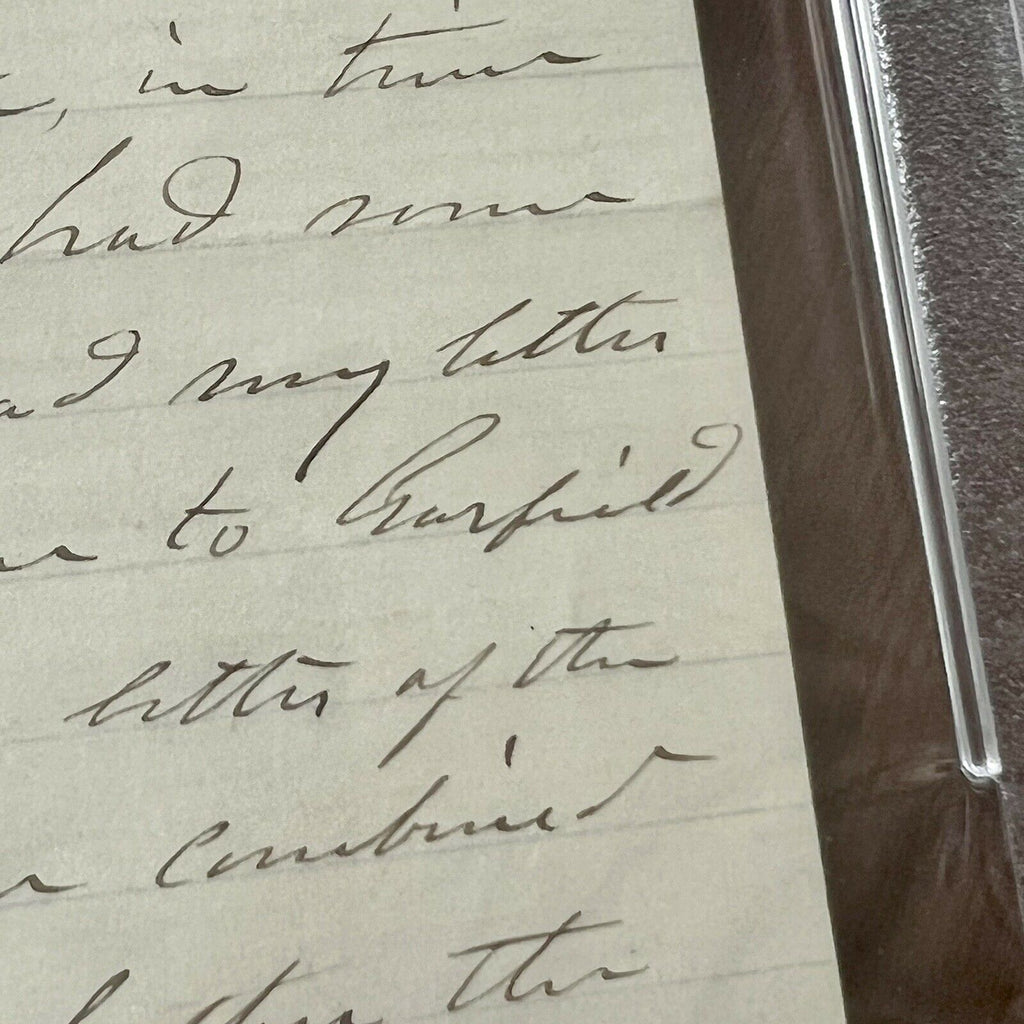 , in time
had some
my letter
to Garfield
letter of the
combined
the